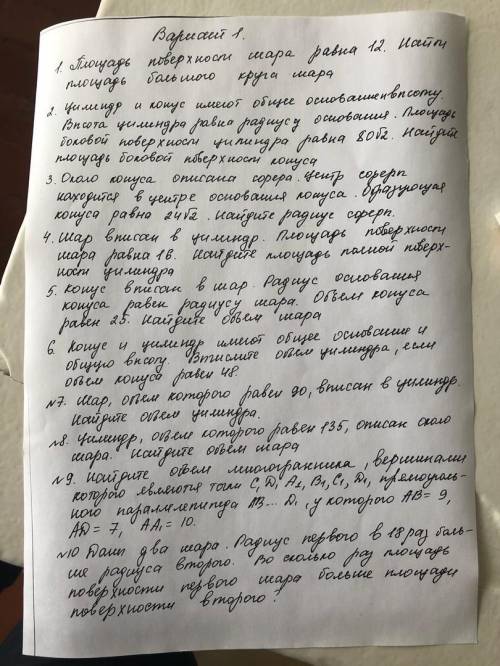 Вариант 1.
1. Площадь поверхности шара равна 12. Найти
площадь большого круга шара
2. Цилиндр и конус имеют общее основание и высоту.
Высота цилиндра равна радиусу основания. Площадь
боковой поверхности цилиндра равна 80√2. Найдите
площадь боковой поверхности конуса
3. Около конуса описана сфера. Центр сферы
находится в центре основания конуса. Образующая
конуса равна 24√2. Найдите радиус сферы.
4. Шар вписан в цилиндр. Площадь поверхности
шара равна 16. Найдите площадь полной поверх-
ности цилиндра
5. Конус вписан в шар. Радиус основания
конуса равен радиусу шара. Объем конуса
равен 25. Найдите объем шара
6. Конус и цилиндр имеют общее основание и
общую высоту. Вычислите объем цилиндра, если
объем конуса равен 48.
№7. Шар, объем которого равен 90, вписан в цилиндр.
Найдите объем цилиндра.
№8. Цилиндр, объем которого равен 135, описан около
шара. Найдите объем шара
№9. Найдите объем многогранника, вершинами
которого являются точки C, D, A₁, B₁, C₁, D₁ прямоуголь-
ного параллелепипеда AB... D₁, у которого AB = 9,
AD = 7, AA₁ = 10.
№10 Даны два шара. Радиус первого в 18 раз боль-
ше радиуса второго. Во сколько раз площадь
поверхности первого шара больше площади
поверхности второго?